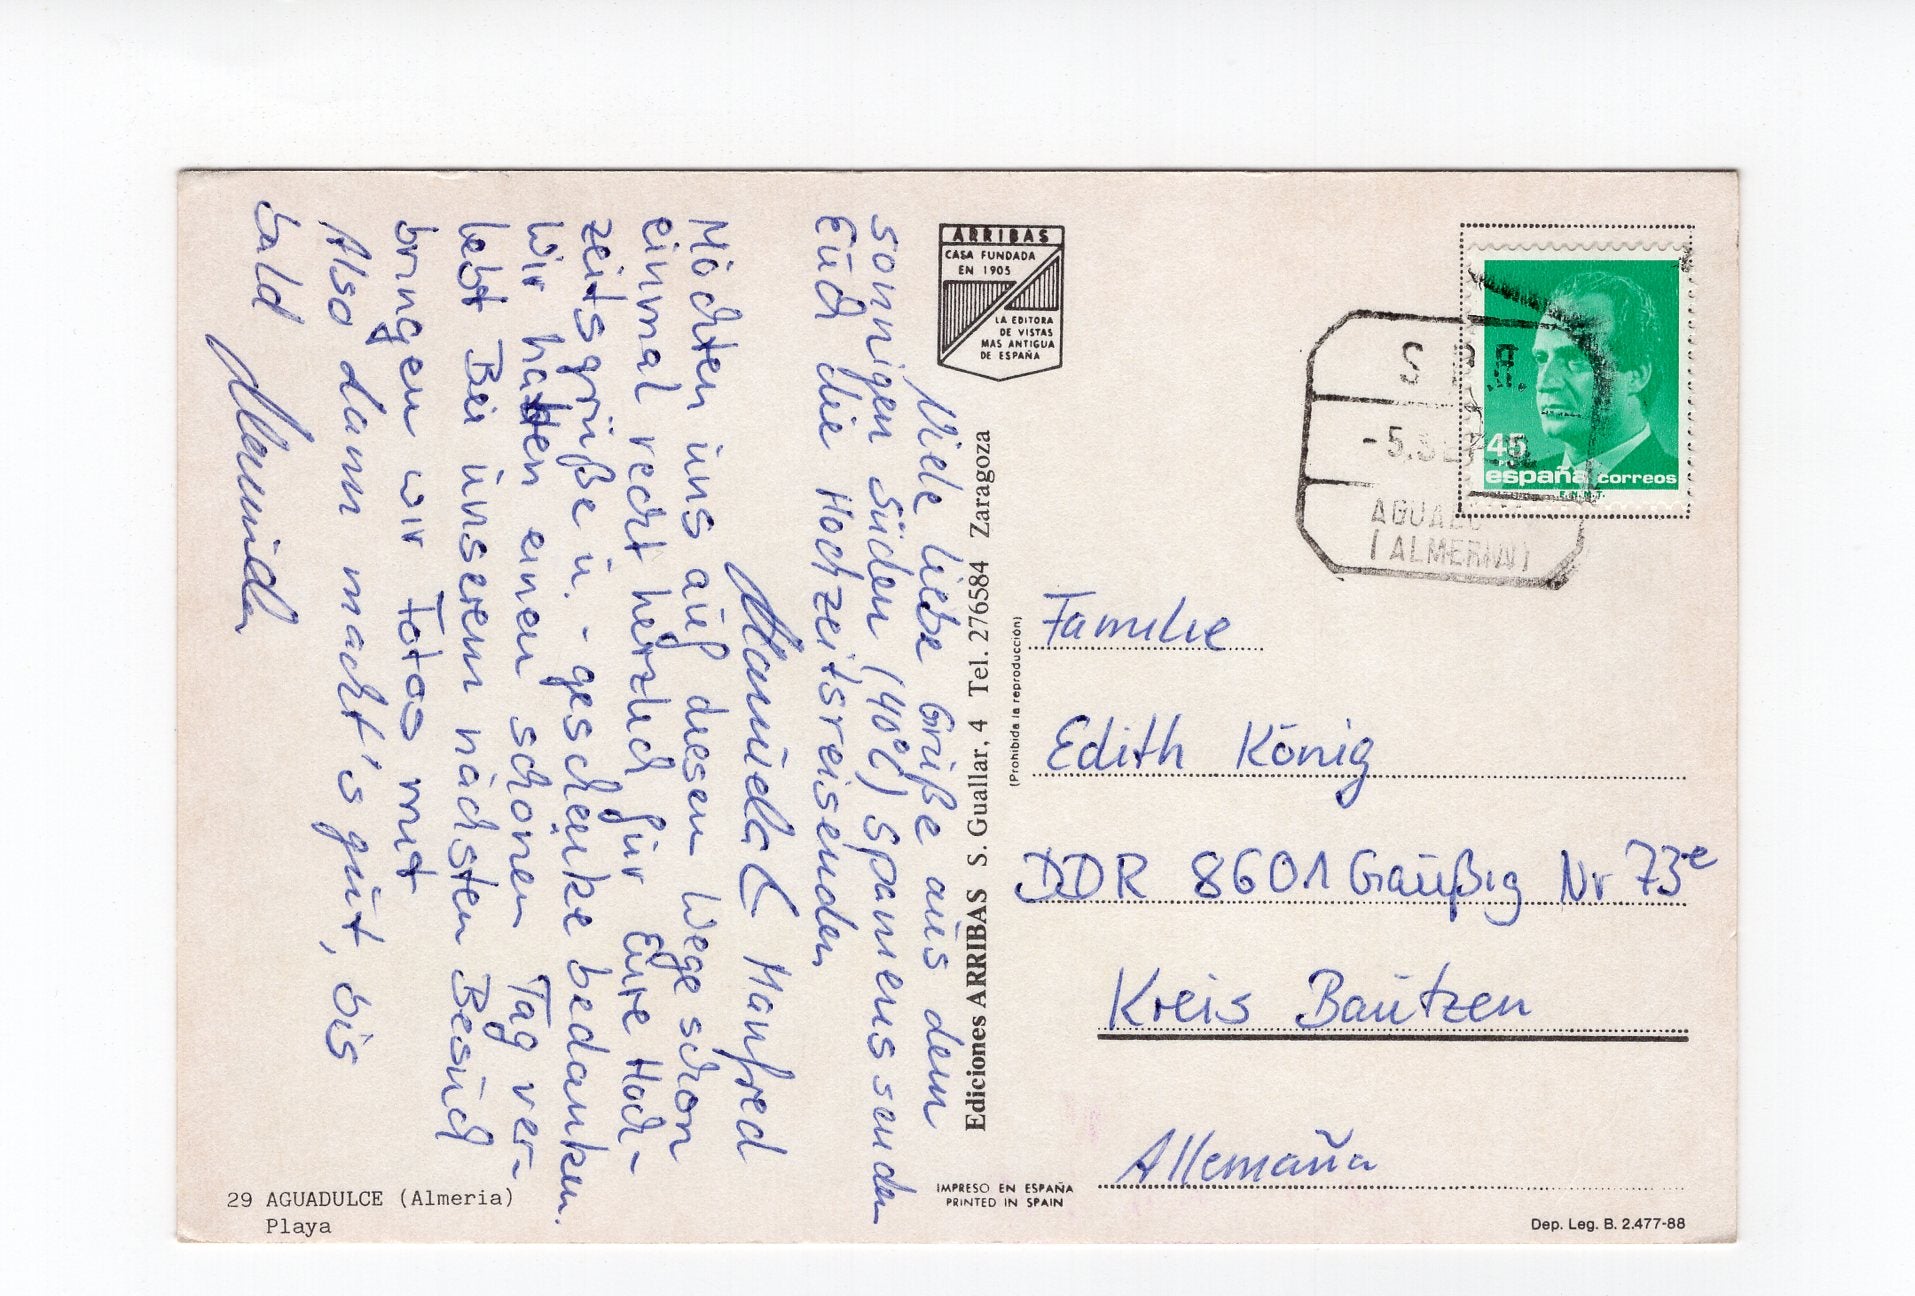 Viele liebe Grüße aus dem
sonnigen Süden (40°C) Spaniens senden
Euch die Hochzeitsreisenden
Manuela & Manfred
Möchten uns auf diesen Wege schon
einmal recht herzlich für Eure Hoch-
zeitsgrüße u. -geschenke bedanken.
Wir hatten einen schönen Tag ver-
lebt Bei unserem nächsten Besuch
bringen wir Fotos mit
Also dann macht's gut, bis
bald Manuela
29 AGUADULCE (Almeria)
Playa
ARRIBAS
CASA FUNDADA
EN 1905
LA EDITORA
DE VISTAS
MAS ANTIGUA
DE ESPAÑA
Ediciones ARRIBAS S. Guallar, 4 Tel. 276584 Zaragoza
(Prohibida la reproducción)
IMPRESO EN ESPAÑA
PRINTED IN SPAIN
45
españa correos
F.N.M.T.
-5.SEP
(ALMERIA)
Familie
Edith König
DDR 8601 Gaußig Nr 73e
Kreis Bautzen
Allemaña
Dep. Leg. B. 2.477-88